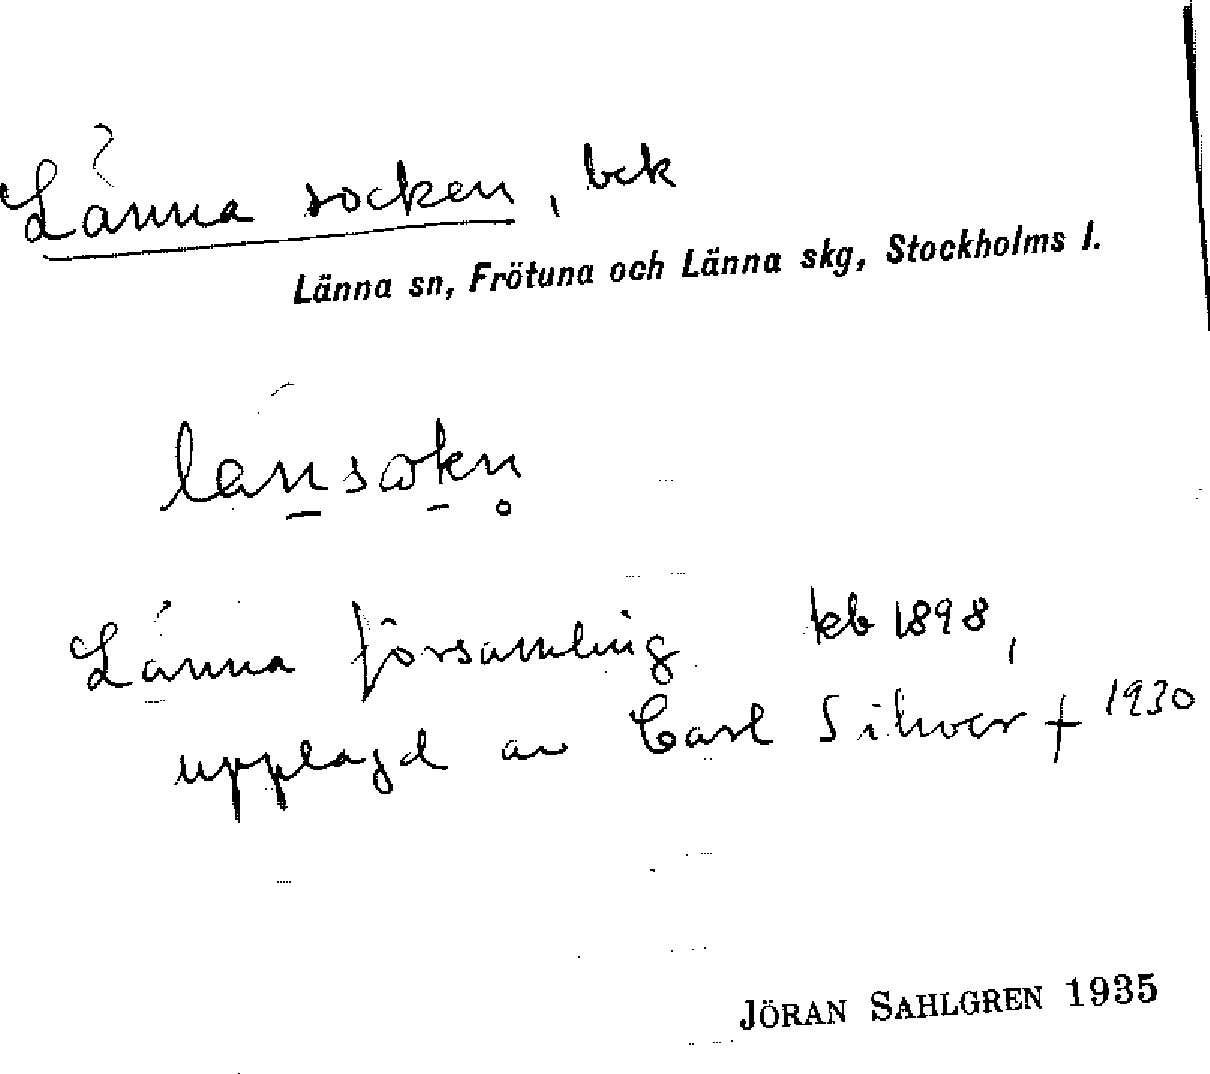 Länna socken, bek
Länna sn, Frötuna och Länna skg, Stockholms l.
länsøkn
Länna församling kb 1898,
upplagd av Carl Silwer † 1930
JÖRAN SAHLGREN 1935